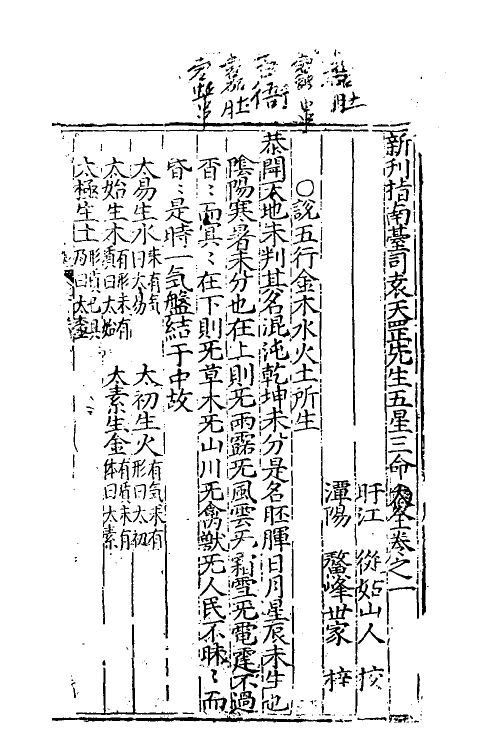 新刋指南臺司袁天罡先生五星三命大全卷之一
盱江 從姑山人 校
潭陽 鰲峰世家 梓
○說五行金木水火土所生
恭聞天地未判其名混沌乾坤未分是名胚腪日月星辰未生也
陰陽寒暑未分也在上則旡雨露旡風雲旡霜雪旡電霆不過
杳〻而冥〻在下則旡草木旡山川旡禽獸旡人民不昧〻而
昏〻是時一気盤結于中故
太易生水 未有気曰太易 太初生火 有気未有形曰太初
太始生木 有形未有質曰太始 太素生金 有質未有体曰太素
太極生土 形質已具乃曰太極